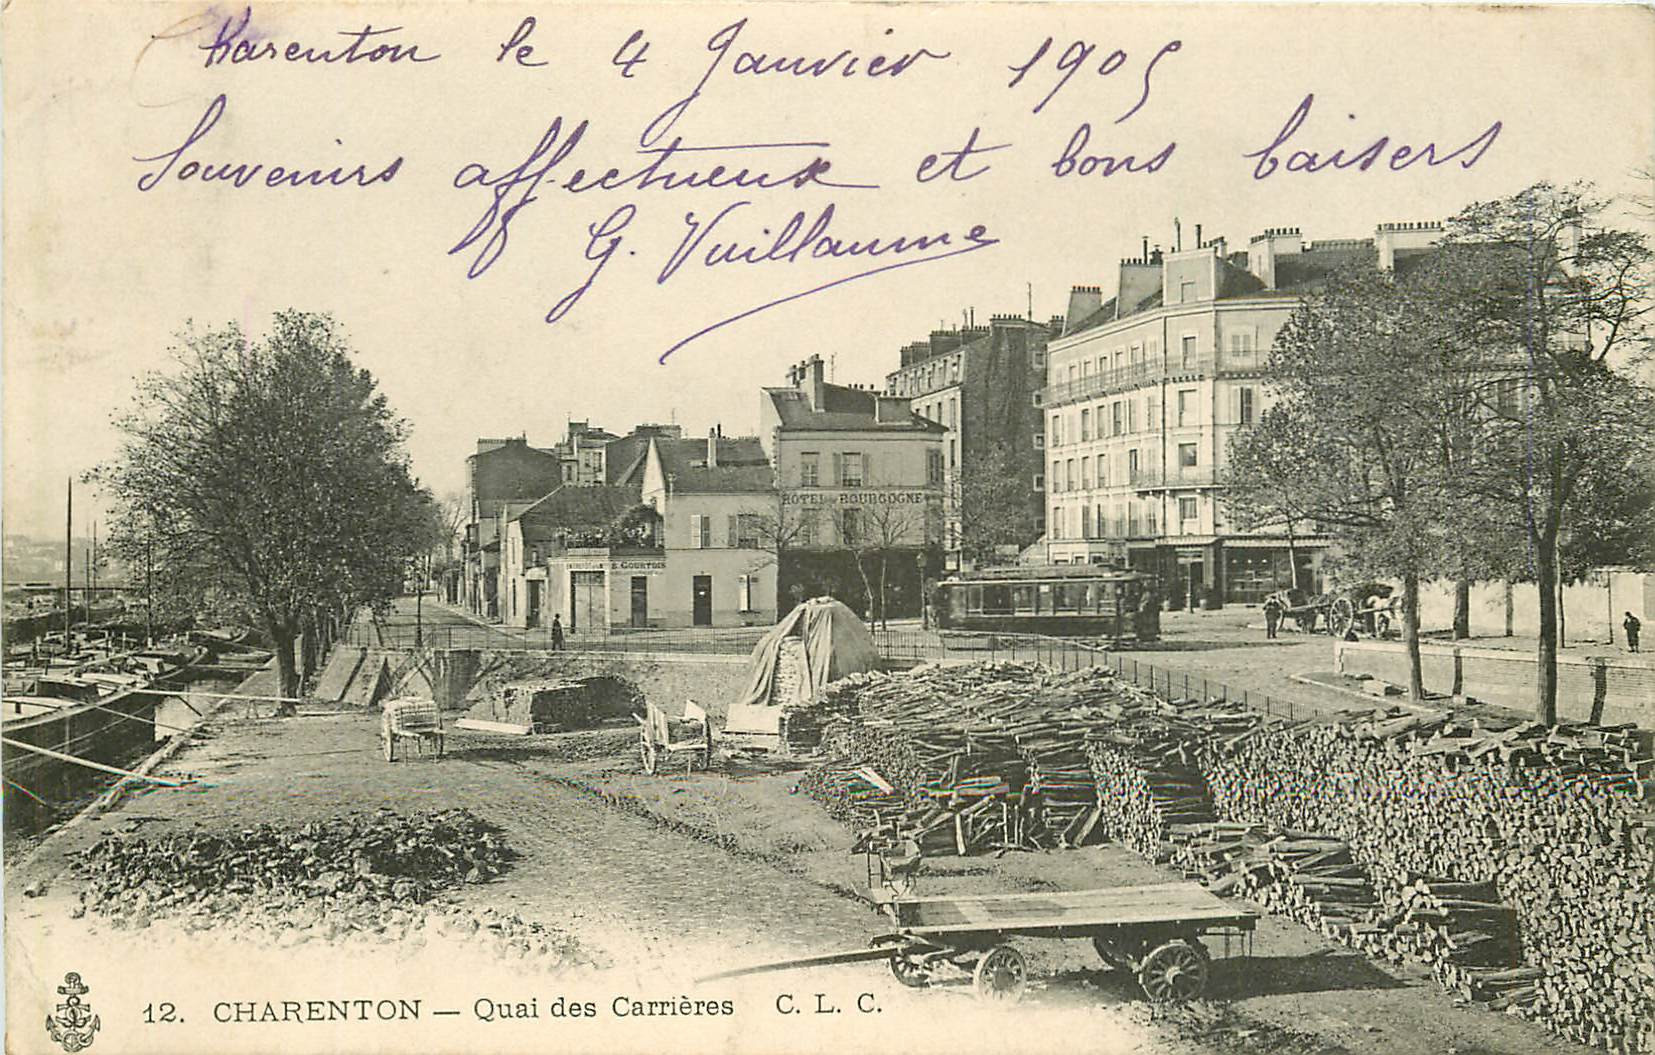 Charenton le 4 Janvier 1905
Souvenirs affectueux et bons baisers
G. Vuillaume
HÔTEL DE BOURGOGNE
E. COURTOIS
12. CHARENTON — Quai des Carrières C. L. C.